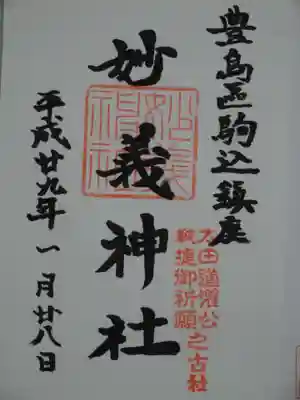 豊島区駒込鎮座
太田道灌公
戦捷御祈願
之古社
妙義神社
平成廿九年一月廿八日